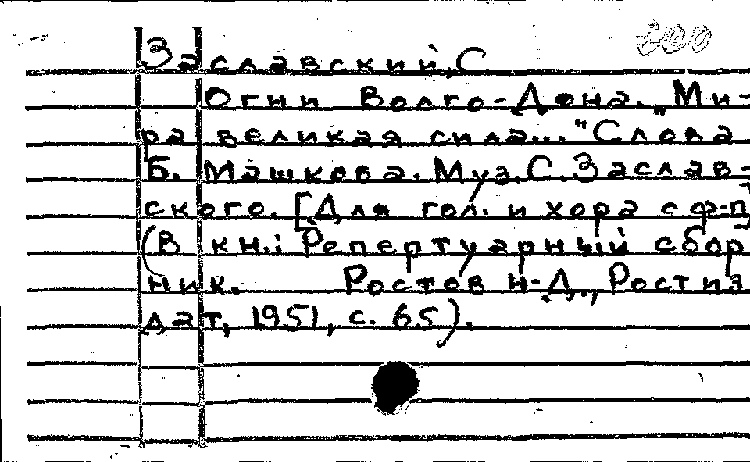 Заславский, С
Огни Волго-Дона. „Ми-
ра великая сила..." Слова
Б. Машкова. Муз. С. Заслав-
ского. [Для гол. и хора с ф-п]
(В кн.: Репертуарный сбор
ник. Ростов н-Д., Ростиз
дат, 1951, с. 65).